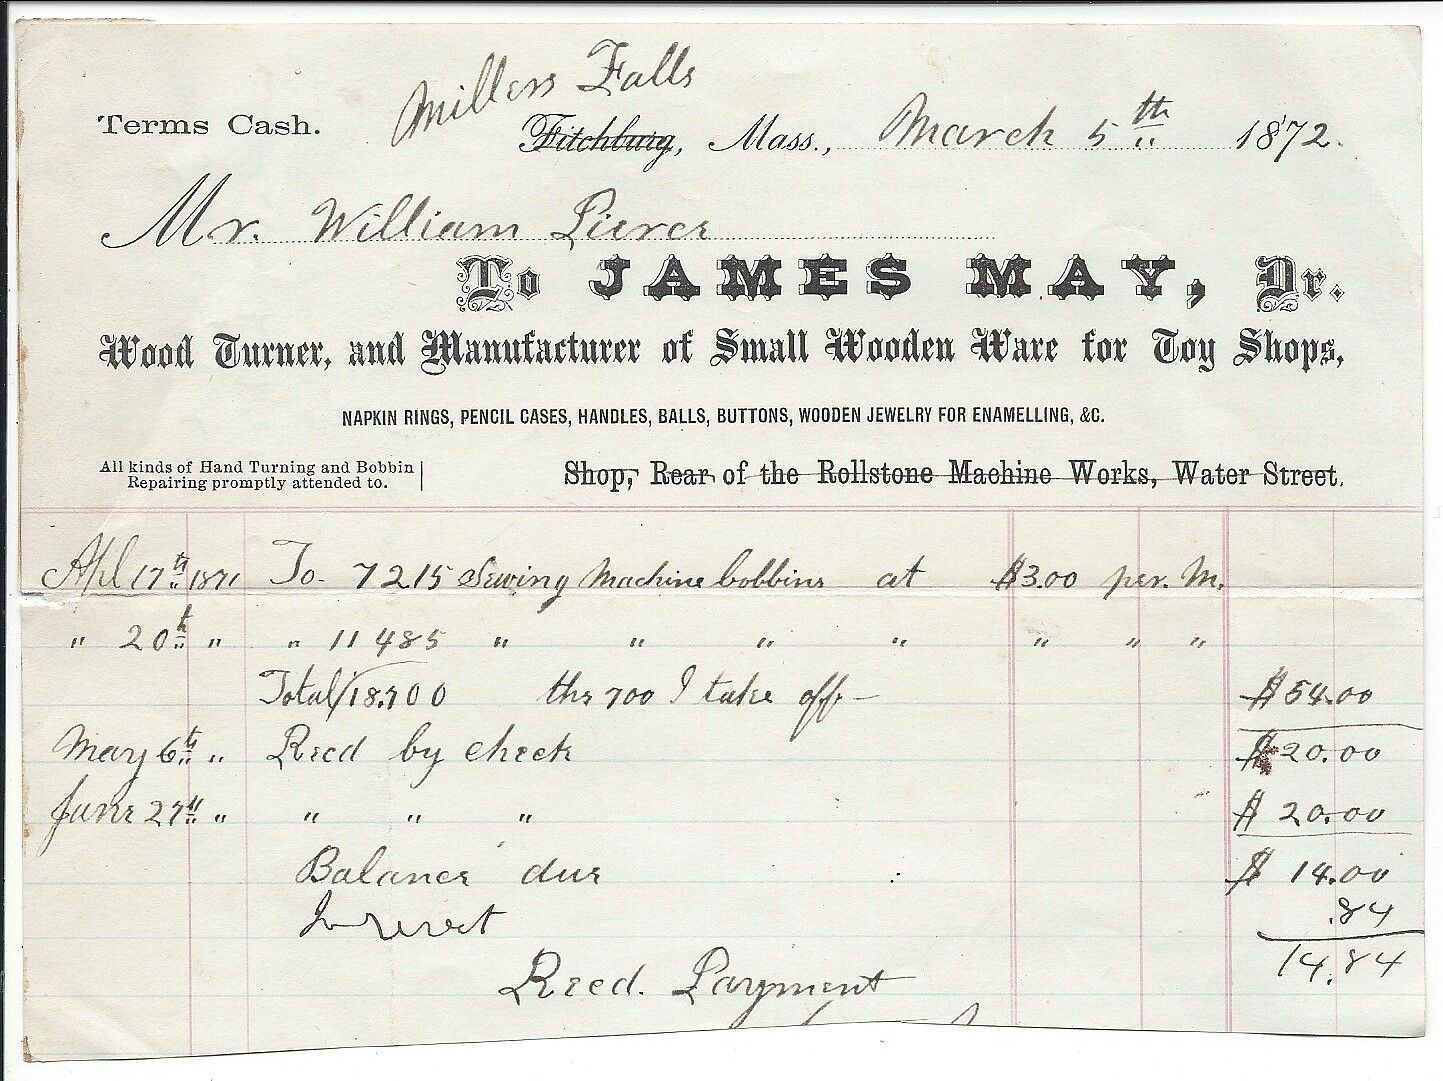 Millers Falls
Terms Cash.
Fitchburg, Mass., March 5th 1872.
Mr. William Pierce
To JAMES MAY, Dr.
Wood Turner, and Manufacturer of Small Wooden Ware for Toy Shops,
NAPKIN RINGS, PENCIL CASES, HANDLES, BALLS, BUTTONS, WOODEN JEWELRY FOR ENAMELLING, &C.
All kinds of Hand Turning and Bobbin
Repairing promptly attended to.
Shop, Rear of the Rollstone Machine Works, Water Street.
Apl 17th 1871 To 7215 Sewing Machine bobbins at $3.00 per. M.
" 20th " " 11485 " " " " " " "
Total 18.700 the 700 I take off — $54.00
May 6th " Recd by check $20.00
June 27th " " " " $20.00
Balance due $14.00
Interest .84
14.84
Recd. Payment